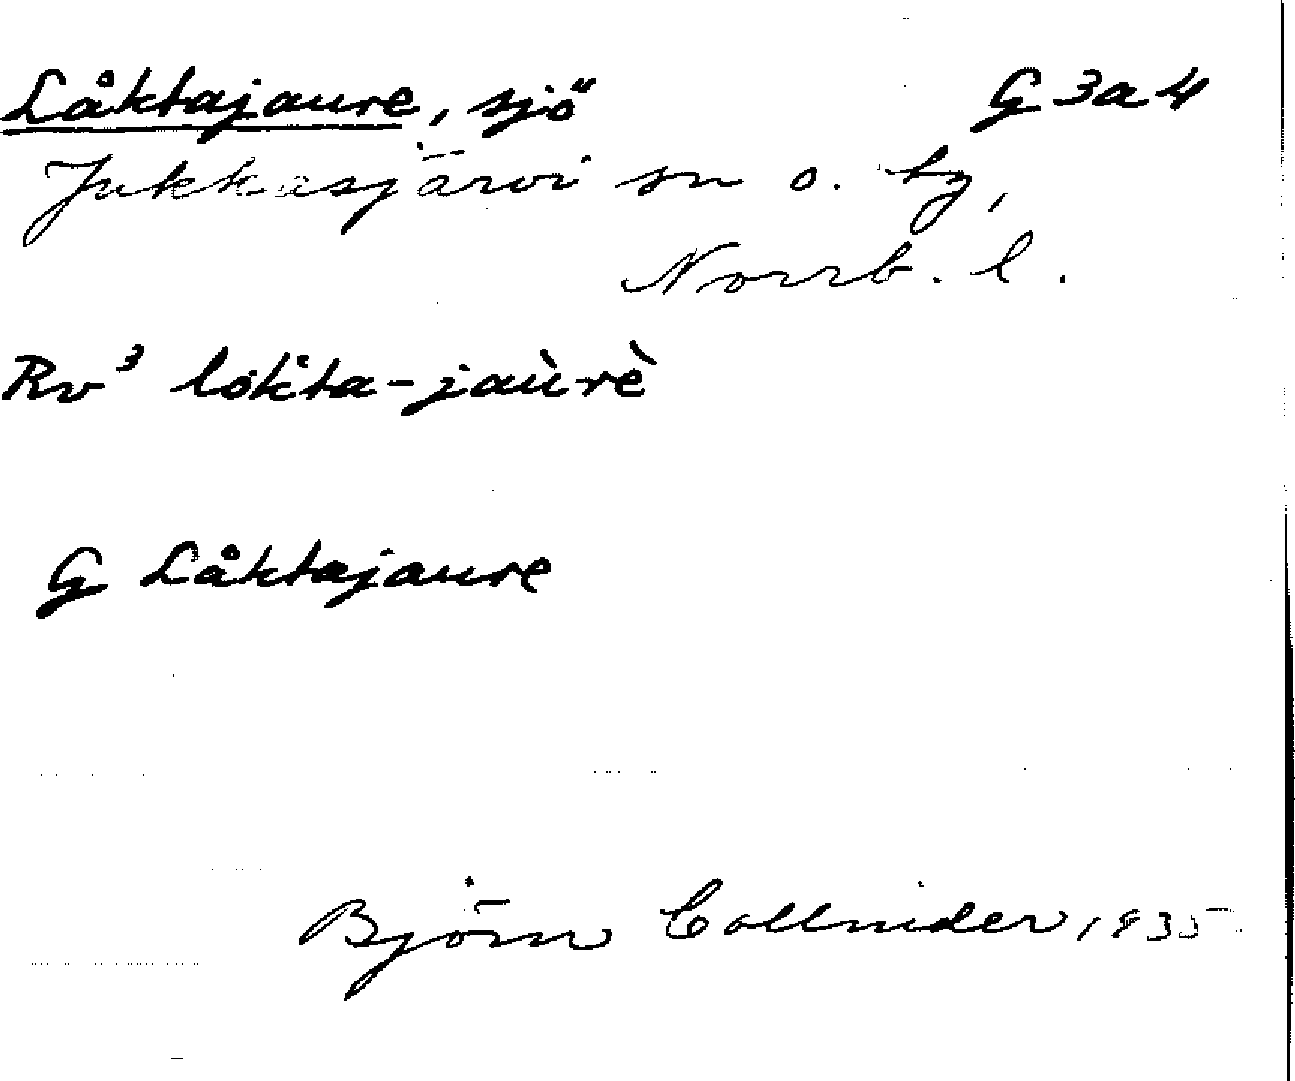 Låktajaure, sjö G 3a4
Jukkasjärvi sn o. tg,
Norrb. l.
Rv³ lokta-jaùrè
G Låktajaure
Björn Collinder 1935